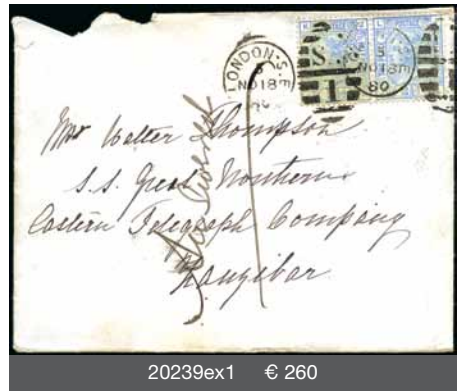 LONDON·S.E
5
NO 18
80
S.E.
1
5
NO 18
80
Mr Walter Thompson
S.S. Great Northern
Eastern Telegraph Company
Zanzibar
20239ex1 € 260